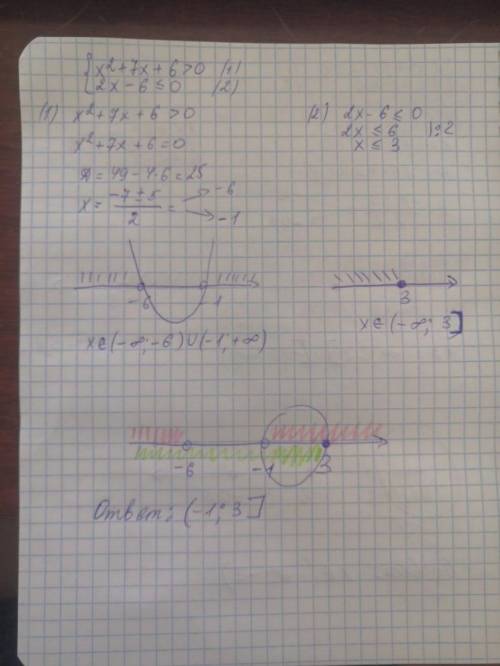 { x²+7x+6>0 (1)
{ 2x-6≤0 (2)
(1) x²+7x+6>0
x²+7x+6=0
D=49-4·6=25
x= (-7±5)/2 = -6
-1
-6 -1
x∈(-∞;-6)∪(-1;+∞)
(2) 2x-6≤0
2x≤6 |:2
x≤3
3
x∈(-∞;3]
-6 -1 3
Ответ: (-1;3]